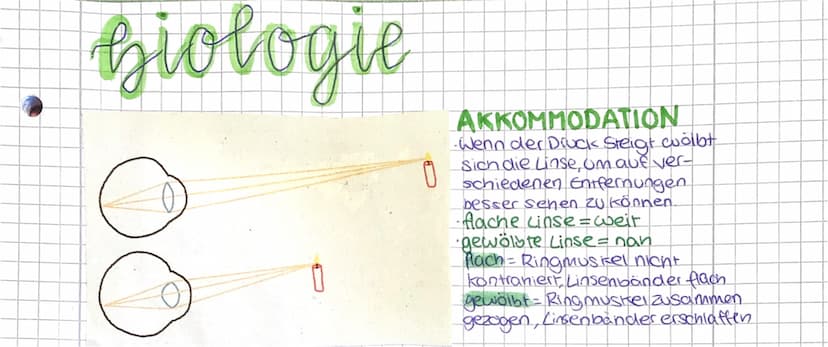 biologie
AKKOMMODATION
·Wenn der Druck steigt wölbt
sich die Linse, um auf ver-
schiedenen Entfernungen
besser sehen zu können.
·flache Linse = weit
·gewölbte Linse = nah
flach = Ringmuskel nicht
kontraniert, Linsenbänder flach
gewölbt = Ringmuskel zusammen
gezogen, Linsenbänder erschlaffen